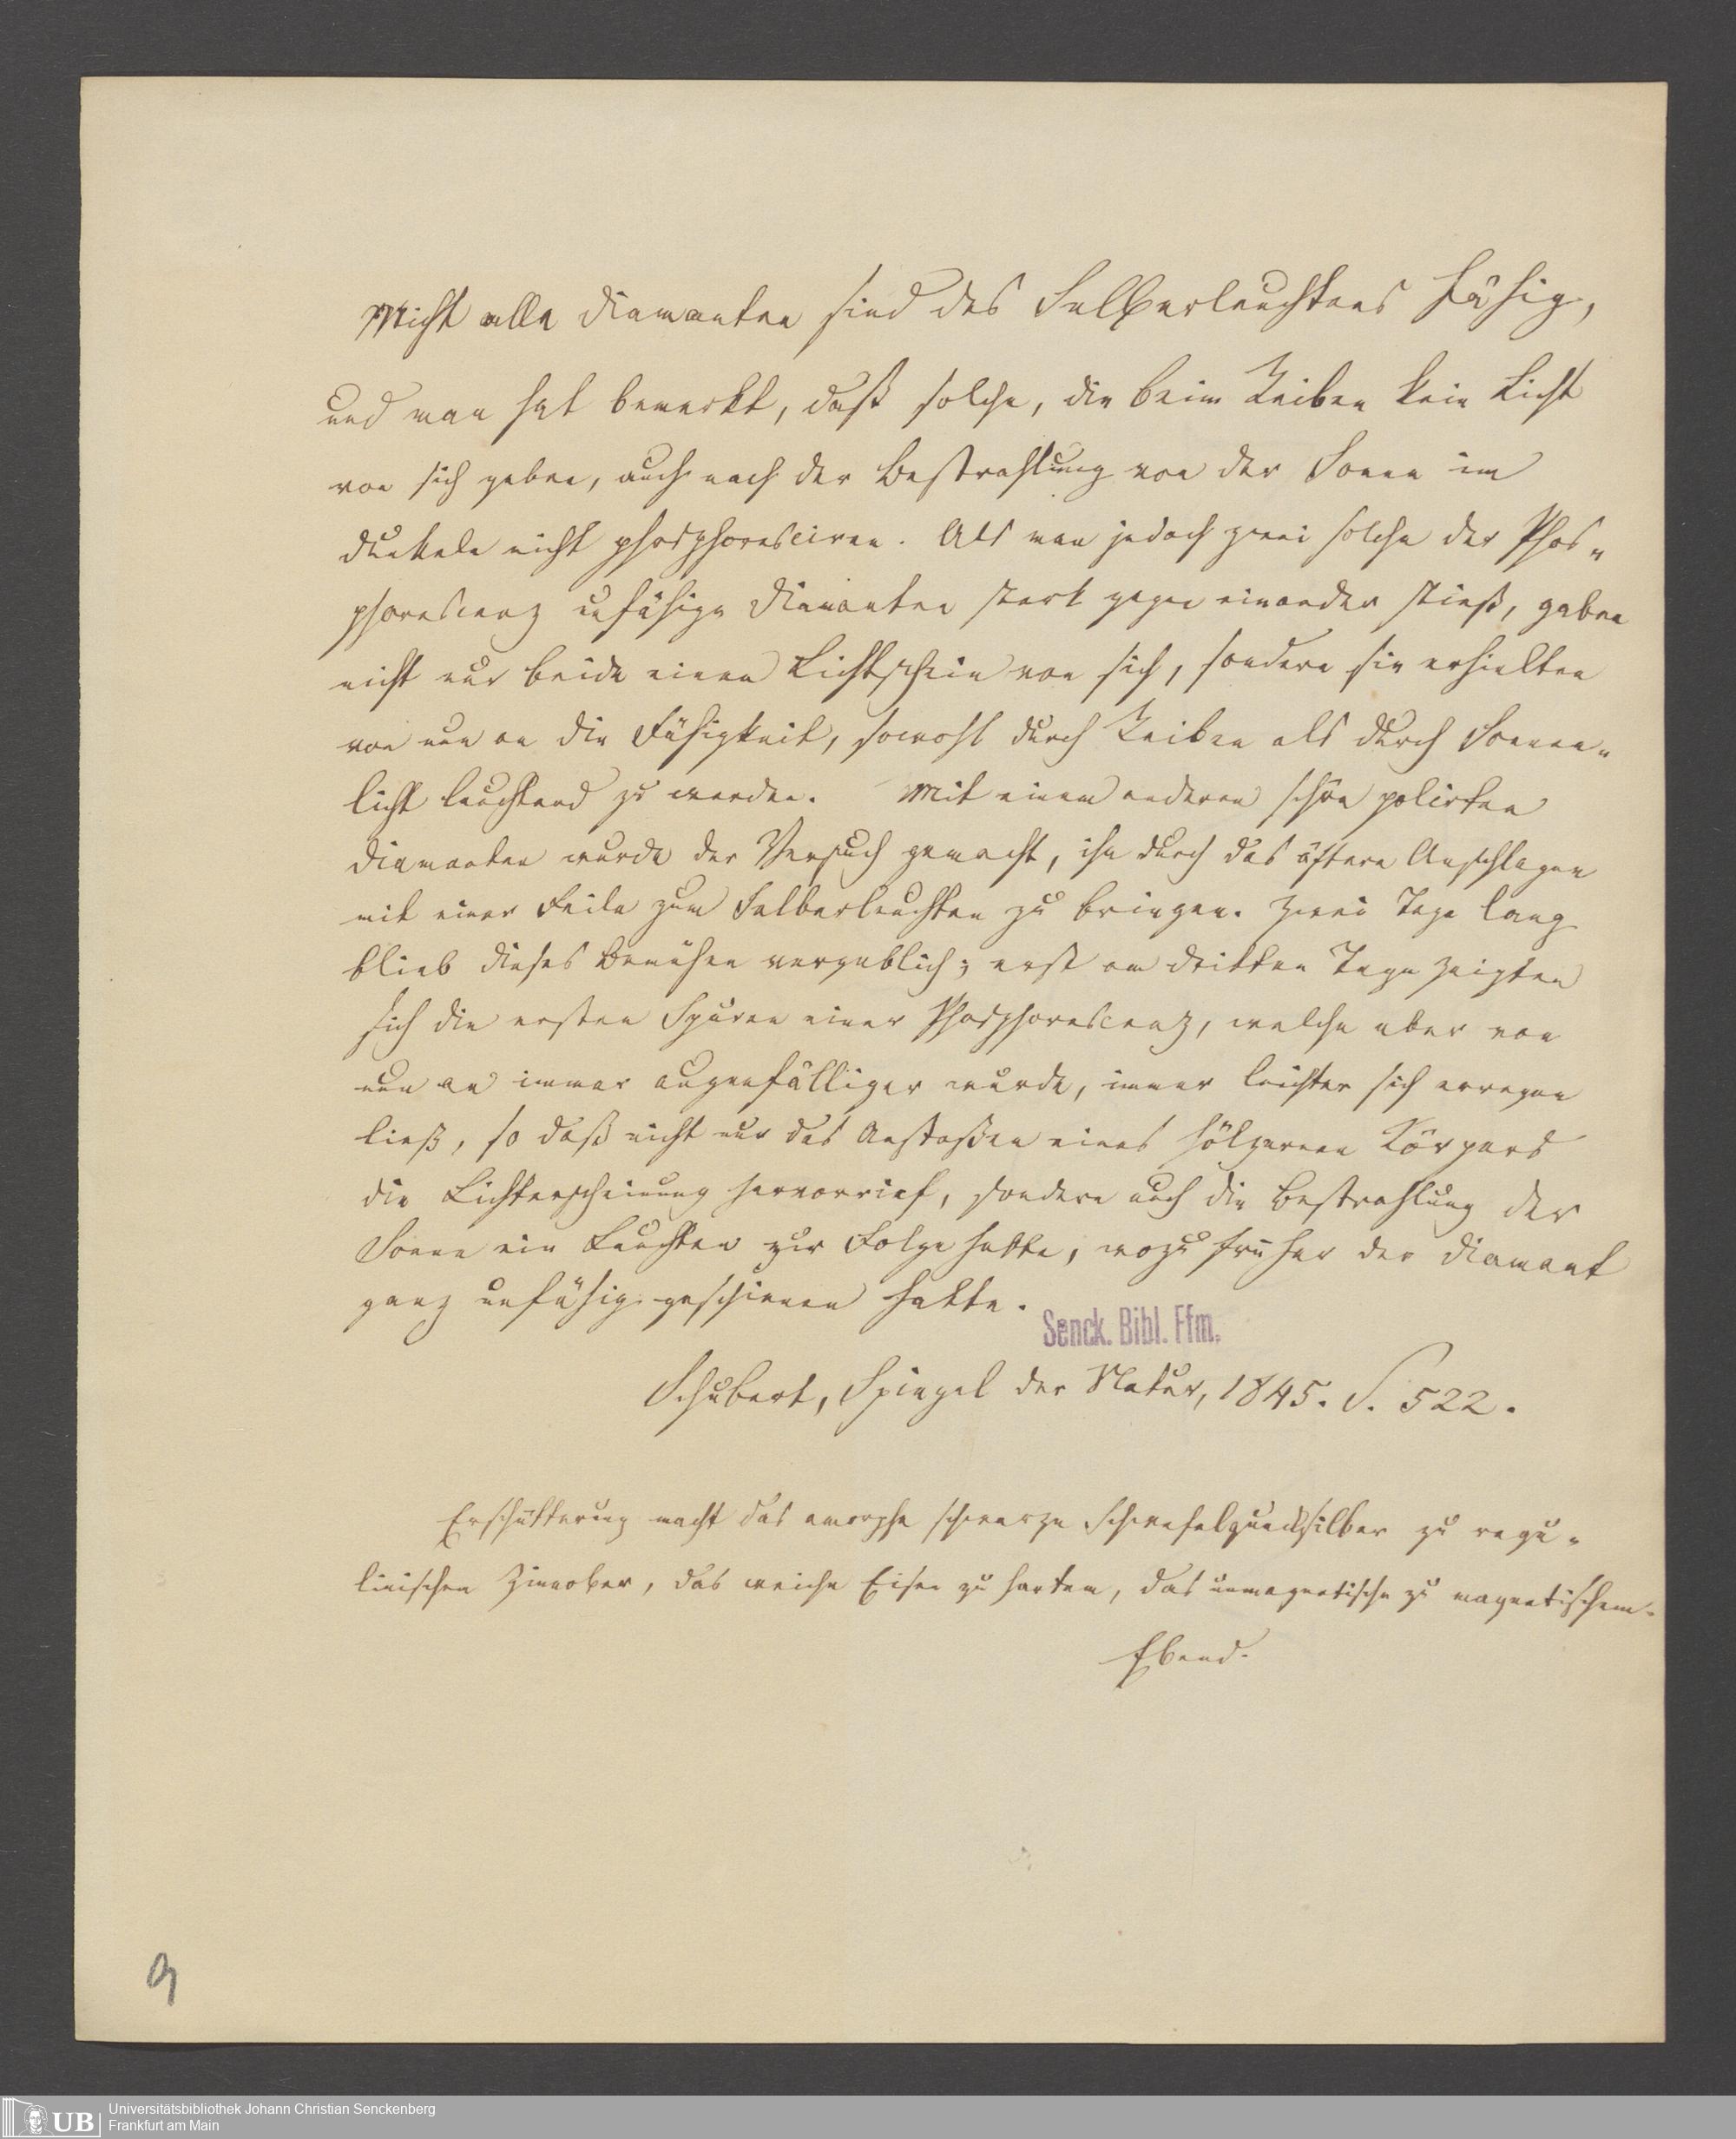 Nicht alle Diamanten sind des Selberleuchtens fähig,
und man hat bemerkt, daß solche, die beim Reiben kein Licht
von sich geben, auch nach der Bestrahlung von der Sonne im
Dunkeln nicht phosphoresciren. Als man jedoch zwei solche der Phos„
phorescenz unfähige Diamanten stark gegen einander stieß, gaben
nicht nur beide einen Lichtschein von sich, sondern sie erhielten
von nun an die Fähigkeit, sowohl durch Reiben als durch Sonnen„
licht leuchtend zu werden. Mit einem anderen schön polirten
Diamanten wurde der Versuch gemacht, ihn durch das öftere Anschlagen
mit einer Feile zum Selberleuchten zu bringen. Zwei Tage lang
blieb dieses Bemühen vergeblich; erst am dritten Tage zeigten
sich die ersten Spuren einer Phosphorescenz, welche aber von
nun an immer augenfälliger wurde, immer leichter sich erregen
ließ, so daß nicht nur das Anstoßen eines hölzernen Körpers
die Lichterscheinung hervorrief, sondern auch die Bestrahlung der
Sonne ein Leuchten zur Folge hatte, wozu früher der Diamant
ganz unfähig geschienen hatte.
Senck. Bibl. Ffm.
Schubert, Spiegel der Natur, 1845. S. 522.
Erschütterung macht das amorphe schwarze Schwefelquecksilber zu regu„
linischen Zinnober, das weiche Eisen zu hartem, das unmagnetische zu magnetischem.
Ebend.
9
UB
Universitätsbibliothek Johann Christian Senckenberg
Frankfurt am Main